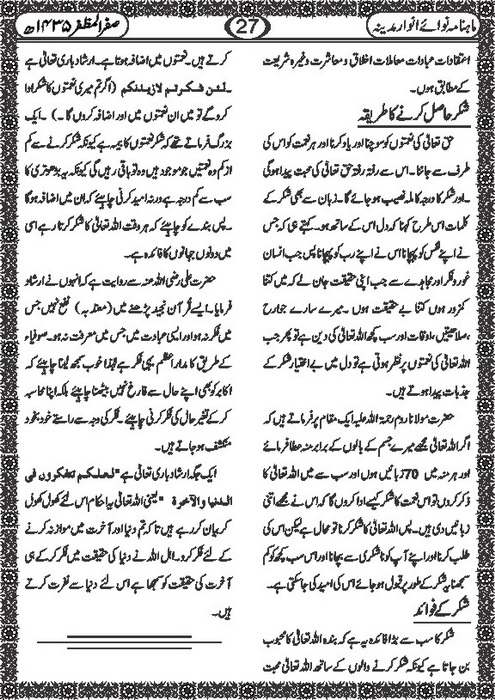 ماہنامہ نوائے انوار مدینہ
27
صفر المظفر ۱۴۳۵ھ
اعتقادات عبادات معاملات اخلاق و معاشرت وغیرہ شریعت
کے مطابق ہوں۔
شکر حاصل کرنے کا طریقہ
حق تعالیٰ کی نعمتوں کو سوچنا اور یاد کرنا اور ہر نعمت کو اس کی
طرف سے جاننا۔ اس سے رفتہ رفتہ حق تعالیٰ کی محبت پیدا ہوگی
۔ اور شکر کا درجہ کاملہ نصیب ہو جائے گا۔ زبان سے بھی شکر کے
کلمات اس طرح کہنا کہ دل اس کے ساتھ ہو۔ کہتے ہی کہ جس
نے اپنے نفس کو پہچانا اس نے اپنے رب کو پہچانا پس جب انسان
غور و فکر اور مجاہدے سے جب اپنی حقیقت جان لے کہ میں کتنا
کمزور ہوں کتنا بے حقیقت ہوں ۔ میرے سارے جوارح
،صلاحیتیں، اوقات اور سب کچھ اللہ تعالیٰ کی دین ہے تو پھر جب
اللہ تعالیٰ کی نعمتوں پر نظر ہوتی ہے تو دل میں بے اختیار شکر کے
جذبات پیدا ہوتے ہیں۔
حضرت مولانا روم رحمۃ اللہ علیہ ایک مقام پر فرماتے ہیں کہ
اگر اللہ تعالیٰ مجھے میرے جسم کے بالوں کے برابر منہ عطا فرمائے
اور ہر منہ میں 70 زبانیں ہوں اور سب سے میں اللہ تعالیٰ کا
ذکر کروں تو اس نعمت کا شکر کیسے ادا کروں گا کہ اس نے مجھے اتنی
زبانیں دی ہیں۔ پس اللہ تعالیٰ کا شکر کرنا تو محال ہے لیکن اس کی
طلب کرنا اور اپنے آپ کو ناشکری سے بچانا اور اس سب کچھ کو کم
سمجھنا یہ شکر کے طور پر قبول ہو جائے اس کی امید کی جاسکتی ہے۔
شکر کے فوائد
شکر کا سب سے بڑا فائدہ یہ ہے کہ بندہ اللہ تعالیٰ کا محبوب
بن جاتا ہے کیونکہ شکر کرنے والوں کے ساتھ اللہ تعالیٰ محبت
کرتے ہیں۔ نعمتوں میں اضافہ ہوتا ہے۔ ارشاد باری تعالیٰ ہے
۔لئن شکرتم لازیدنکم (اگر تم میری نعمتوں کا شکر ادا
کرو گے تو میں ان نعمتوں میں اور اضافہ کروں گا۔) ۔ ایک
بزرگ فرماتے تھے کہ شکر نعمتوں کا بیمہ ہے کیونکہ شکر کرنے سے کم
از کم وہ نعمتیں جو موجود ہیں وہ تو باقی رہیں گی کیونکہ یہ بڑھوتری کا
سب سے کم درجہ ہے ورنہ امید کرنی چاہیئے کہ ان میں اضافہ ہوگا
۔ پس بندے کو چاہیئے کہ ہر وقت اللہ تعالیٰ کا شکر کرتا رہے اسی
میں دونوں جہانوں کا فائدہ ہے۔
حضرت علی رضی اللہ عنہ سے روایت ہے کہ انہوں نے ارشاد
فرمایا۔ ایسے قرآن مجید پڑھنے میں (معتد بہ) نفع نہیں جس
میں فکر نہ ہو اور ایسی عبادت میں جس میں معرفت نہ ہو۔ صوفیاء
کے طریق کا مدار اعظم یہی فکر ہے لہٰذا خوب سمجھ لینا چاہیئے کہ
اکابر کو بھی اپنے حال سے فارغ نہیں بیٹھنا چاہیئے بلکہ اپنا محاسبہ
کر کے تغیر حال کی فکر کرنی چاہیئے۔ فکر کی وجہ سے راستے خود بخود
منکشف ہو جاتے ہیں۔
ایک جگہ ارشاد باری تعالیٰ ہے "لعلکم تتفکرون فی
الدنیا والآخرة" یعنی اللہ تعالیٰ یہ احکام اس لئے کھول کھول
کر بیان کر رہے ہیں تا کہ تم دنیا اور آخرت میں موازنہ کرنے
کے لئے فکر کرو۔ اہل اللہ نے دنیا کی حقیقت میں فکر کر کے ہی
آخرت کی حقیقت کو سمجھا ہے اس لئے دنیا سے نفرت کرتے
ہیں۔